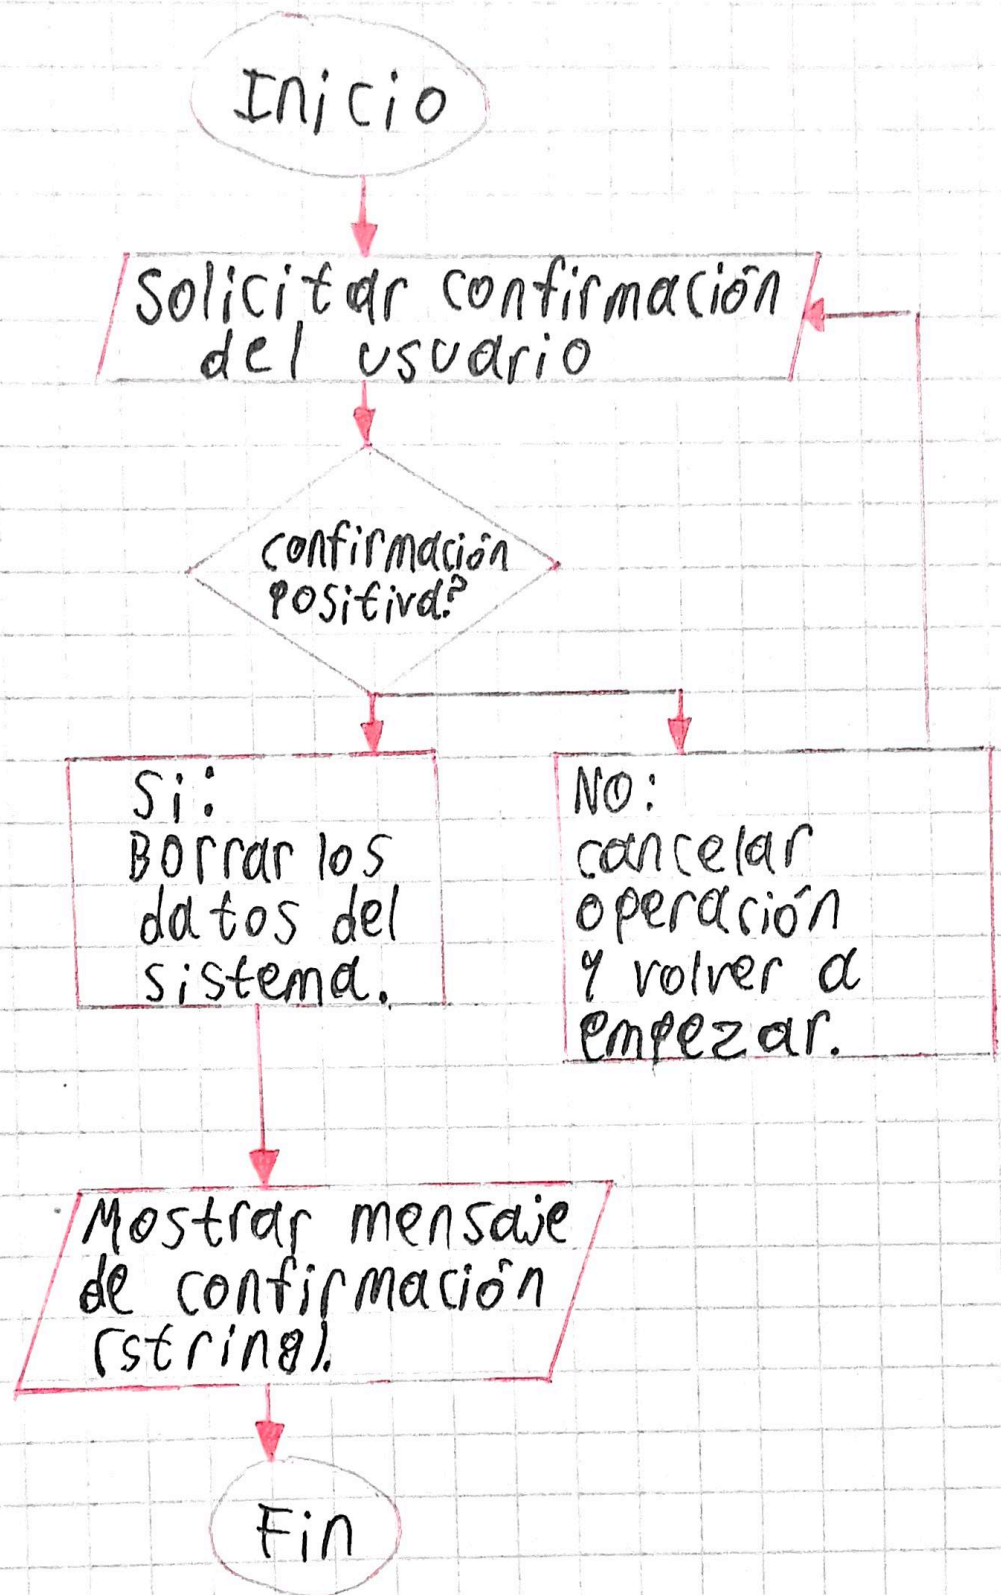 Inicio
Solicitar confirmación
del usuario
confirmación
positiva?
Si:
Borrar los
datos del
sistema.
NO:
cancelar
operación
y volver a
empezar.
Mostrar mensaje
de confirmación
(string).
Fin